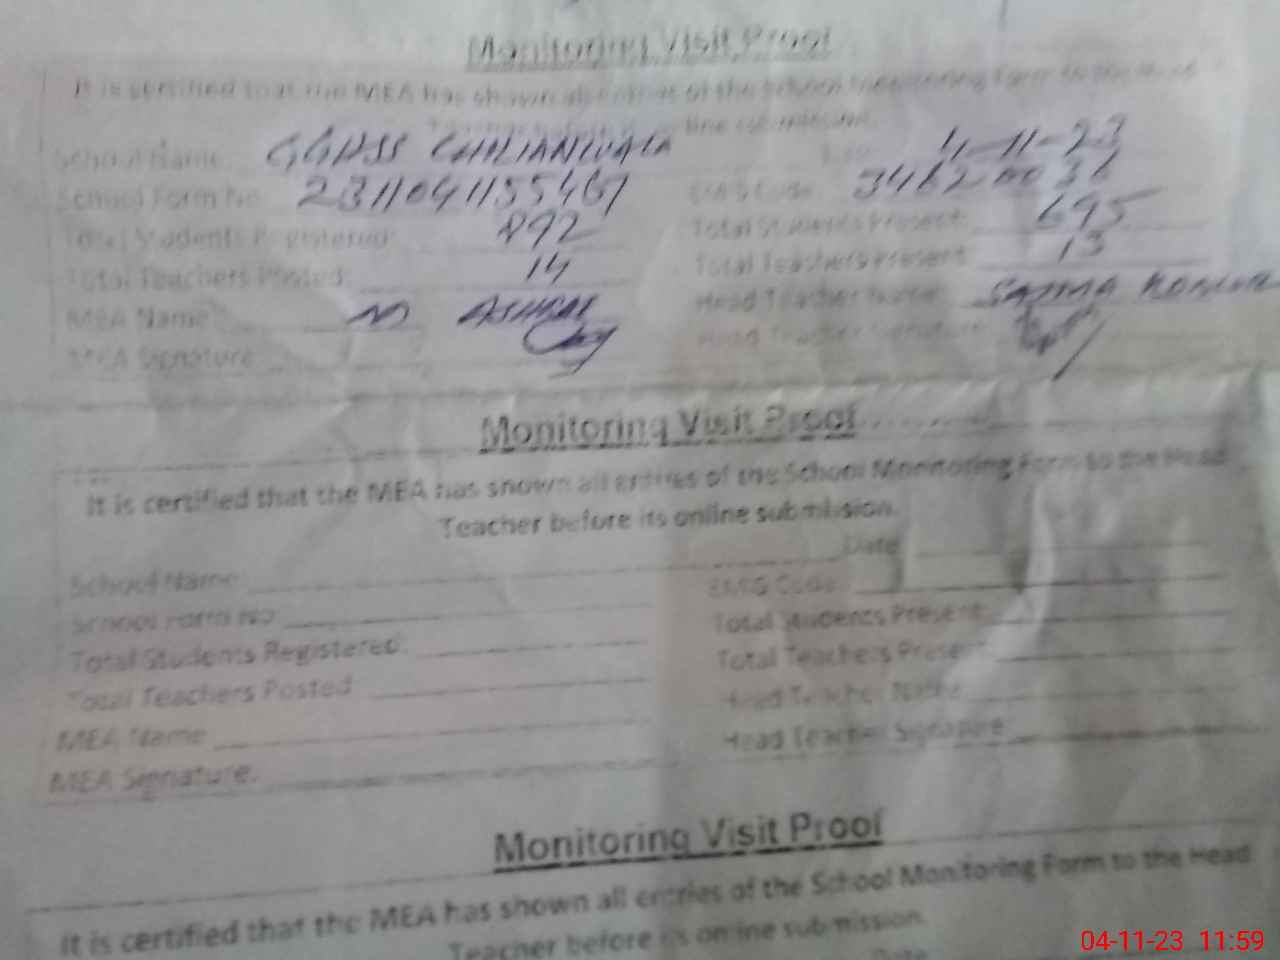 Monitoring Visit Proof
It is certified that the MEA has shown all entries of the School Monitoring Form to the Head
Teacher before its online submission.
School Name: GGHSS CHILIANWALA 4-11-23
School Form No 231104115546 EMIS Code 34620036
Total Students Registered: 892 Total Students Present: 695
Total Teachers Posted: 14 Total Teachers Present 13
MEA Name: M ASHRAF Head Teacher Name
MEA Signature Head Teacher Signature
Monitoring Visit Proof
It is certified that the MEA has shown all entries of the School Monitoring Form to the Head
Teacher before its online submission.
School Name Date
School Form No EMIS Code
Total Students Registered: Total Students Present:
Total Teachers Posted Total Teachers Present
MEA Name Head Teacher Name
MEA Signature. Head Teacher Signature
Monitoring Visit Proof
It is certified that the MEA has shown all entries of the School Monitoring Form to the Head
Teacher before its online submission.
Date
04-11-23 11:59